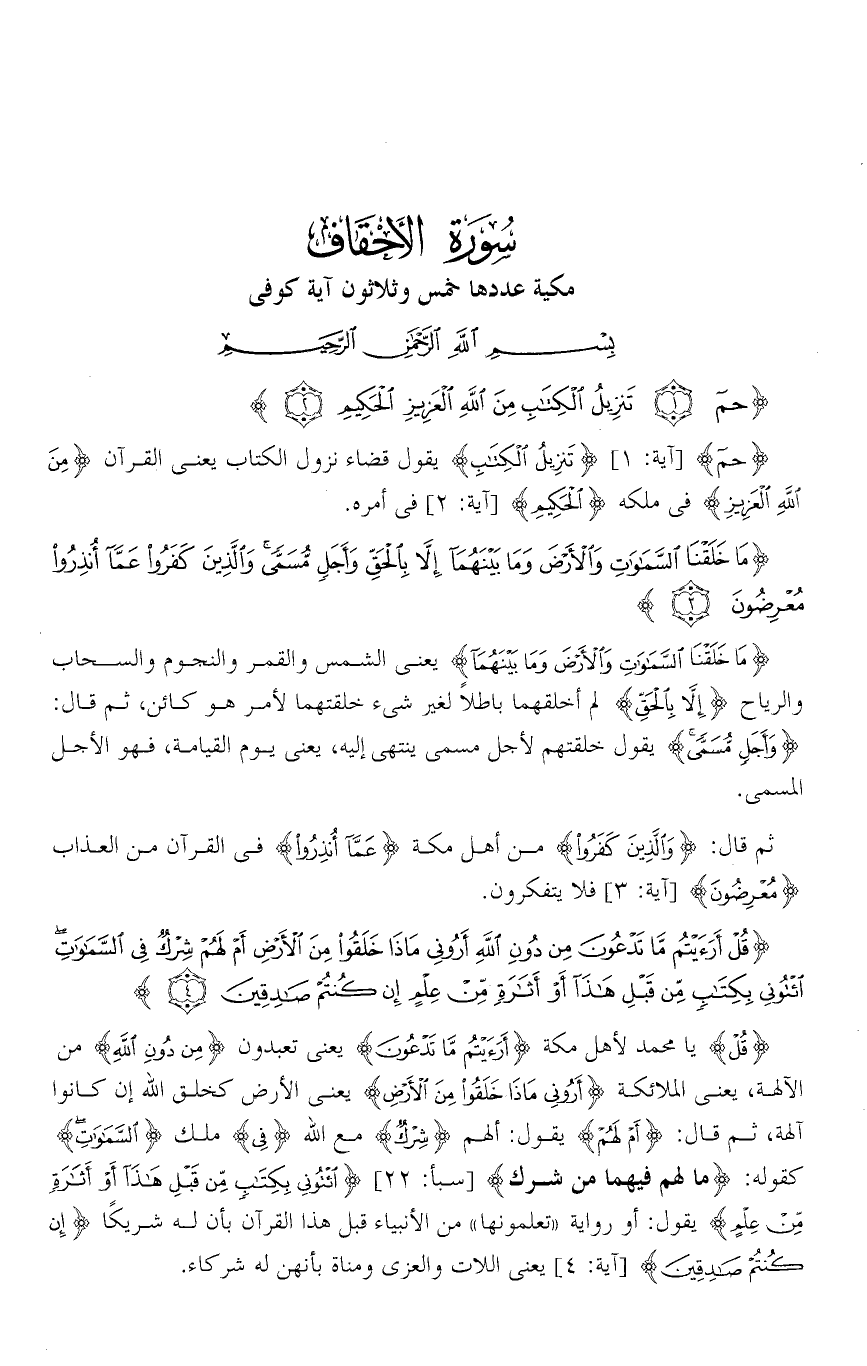 سُورَة الأَحْقَاف
مكية عددها خمس وثلاثون آية كوفى
بِسْمِ ٱللَّهِ ٱلرَّحْمَٰنِ ٱلرَّحِيمِ
﴿حمٓ ١ تَنزِيلُ ٱلْكِتَٰبِ مِنَ ٱللَّهِ ٱلْعَزِيزِ ٱلْحَكِيمِ ٢﴾
﴿حمٓ﴾ [آية: ١] ﴿تَنزِيلُ ٱلْكِتَٰبِ﴾ يقول قضاء نزول الكتاب يعنى القرآن ﴿مِنَ
ٱللَّهِ ٱلْعَزِيزِ﴾ فى ملكه ﴿ٱلْحَكِيمِ﴾ [آية: ٢] فى أمره.
﴿مَا خَلَقْنَا ٱلسَّمَٰوَٰتِ وَٱلْأَرْضَ وَمَا بَيْنَهُمَآ إِلَّا بِٱلْحَقِّ وَأَجَلٍ مُّسَمًّىۚ وَٱلَّذِينَ كَفَرُوا۟ عَمَّآ أُنذِرُوا۟
مُعْرِضُونَ ٣﴾
﴿مَا خَلَقْنَا ٱلسَّمَٰوَٰتِ وَٱلْأَرْضَ وَمَا بَيْنَهُمَآ﴾ يعنى الشمس والقمر والنجوم والسحاب
والرياح ﴿إِلَّا بِٱلْحَقِّ﴾ لم أخلقهما باطلاً لغير شىء خلقتهما لأمر هو كائن، ثم قال:
﴿وَأَجَلٍ مُّسَمًّىۚ﴾ يقول خلقتهم لأجل مسمى ينتهى إليه، يعنى يوم القيامة، فهو الأجل
المسمى.
ثم قال: ﴿وَٱلَّذِينَ كَفَرُوا۟﴾ من أهل مكة ﴿عَمَّآ أُنذِرُوا۟﴾ فى القرآن من العذاب
﴿مُعْرِضُونَ﴾ [آية: ٣] فلا يتفكرون.
﴿قُلْ أَرَءَيْتُم مَّا تَدْعُونَ مِن دُونِ ٱللَّهِ أَرُونِى مَاذَا خَلَقُوا۟ مِنَ ٱلْأَرْضِ أَمْ لَهُمْ شِرْكٌ فِى ٱلسَّمَٰوَٰتِۖ
ٱئْتُونِى بِكِتَٰبٍ مِّن قَبْلِ هَٰذَآ أَوْ أَثَٰرَةٍ مِّنْ عِلْمٍ إِن كُنتُمْ صَٰدِقِينَ ٤﴾
﴿قُلْ﴾ يا محمد لأهل مكة ﴿أَرَءَيْتُم مَّا تَدْعُونَ﴾ يعنى تعبدون ﴿مِن دُونِ ٱللَّهِ﴾ من
الآلهة، يعنى الملائكة ﴿أَرُونِى مَاذَا خَلَقُوا۟ مِنَ ٱلْأَرْضِ﴾ يعنى الأرض كخلق الله إن كانوا
آلهة، ثم قال: ﴿أَمْ لَهُمْ﴾ يقول: ألهم ﴿شِرْكٌ﴾ مع الله ﴿فِى﴾ ملك ﴿ٱلسَّمَٰوَٰتِۖ﴾
كقوله: ﴿ما لهم فيهما من شرك﴾ [سبأ: ٢٢] ﴿ٱئْتُونِى بِكِتَٰبٍ مِّن قَبْلِ هَٰذَآ أَوْ أَثَٰرَةٍ
مِّنْ عِلْمٍ﴾ يقول: أو رواية «تعلمونها» من الأنبياء قبل هذا القرآن بأن له شريكًا ﴿إِن
كُنتُمْ صَٰدِقِينَ﴾ [آية: ٤] يعنى اللات والعزى ومناة بأنهن له شركاء.